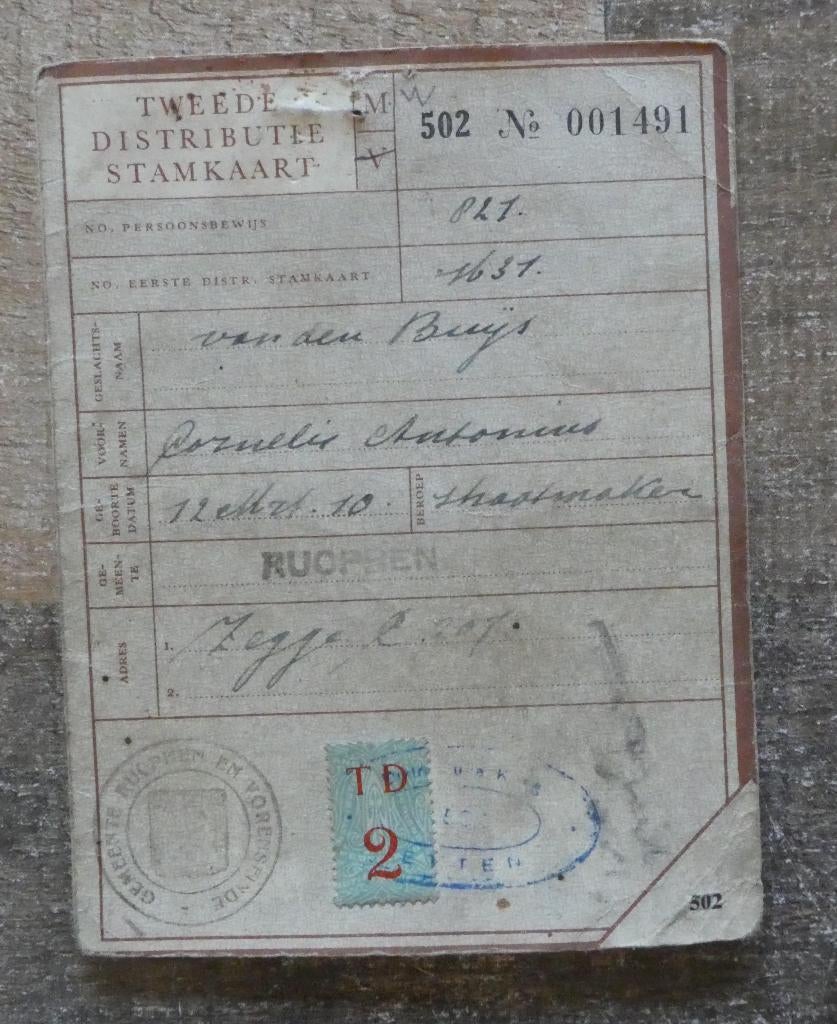 TWEEDE
DISTRIBUTIE
STAMKAART
M W
V
502 № 001491
NO. PERSOONSBEWIJS 821.
NO. EERSTE DISTR. STAMKAART 1631.
GESLACHTS-
NAAM
van den Buijs
VOOR-
NAMEN
Cornelis Antonius
GE-
BOORTE
DATUM
12 Mrt. 10
BEROEP
straatmaker
GE-
MEEN-
TE
RUCPHEN
ADRES
1. Zegge
2.
GEMEENTE RUCPHEN EN VORENSEINDE
TD
2
ETTEN
502